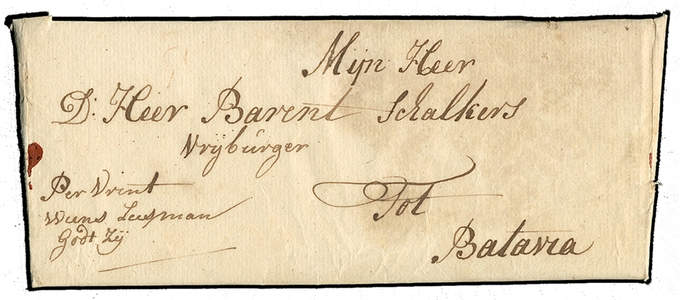 Mijn Heer
D: Heer Barent Schalkers
Vrijbúrger
Per Vrint
Wiens Leijman
Godt Zij
Tot
Batavia